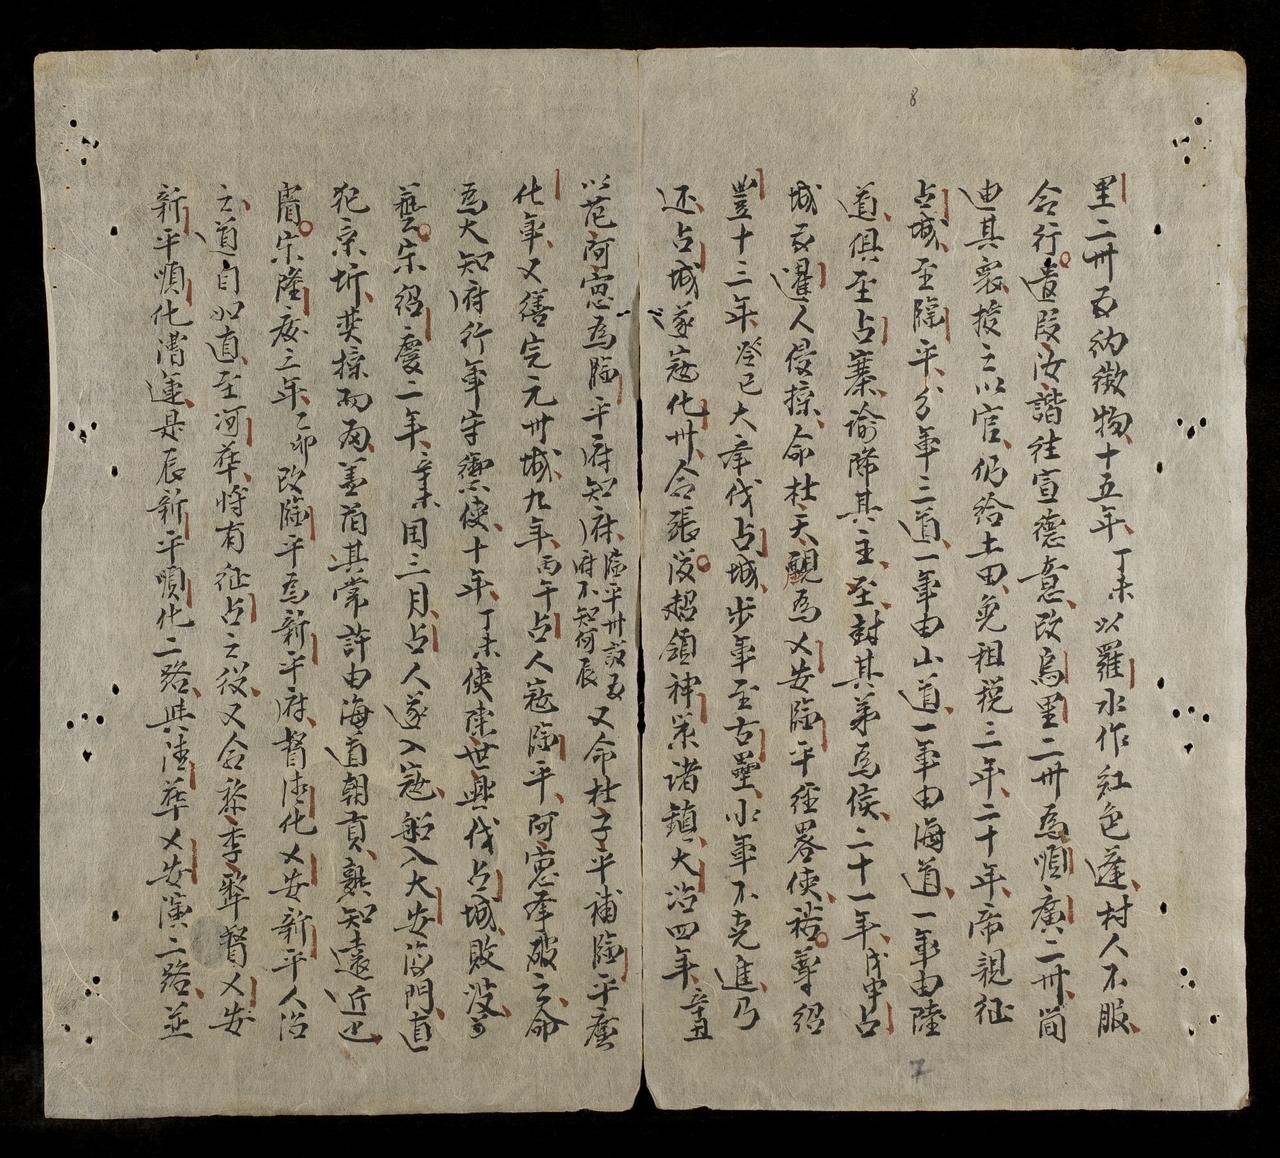 里二卅爲納徵物十五年丁未以羅水作紅色蓬村人不服
令行遣段汝諧往宣德意改烏里二卅爲順廣二卅簡
由其衆授之以官仍給土田免租稅三年二十年帝親征
占城至臨平分軍三道一軍由山道一軍由海道一軍由陸
道俱至占寨諭降其主至封其弟爲侯二十一年戊申占
城爲暹人侵掠命杜天覷爲乂安臨平經畧使裕尊紹
豐十三年癸巳大舉伐占城步軍至古壘水軍不克進乃
还占城遂寇化卅令張漢超領神策诸鎮大治四年辛丑
以范阿窓爲臨平府知府臨平卅設爲府不知何辰又命杜子平補臨平
化軍又繕完元卅城九年丙午占人寇臨平阿窓舉破之命
爲大知府行軍守禦使十年丁未使世興伐占城敗没
藝宗紹慶二年辛亥閏三月占人遂入寇船入大安海門直
犯京圻焚掠而両蓋自其常許由海道朝貢熟知遠近也
睿宗隆慶三年乙卯改臨平爲新平府督清化乂安新平人治
道自直至河華将有征占之役又令黎季犛督乂安
新平順化漕運是辰新平順化二路與清華乂安演二路並